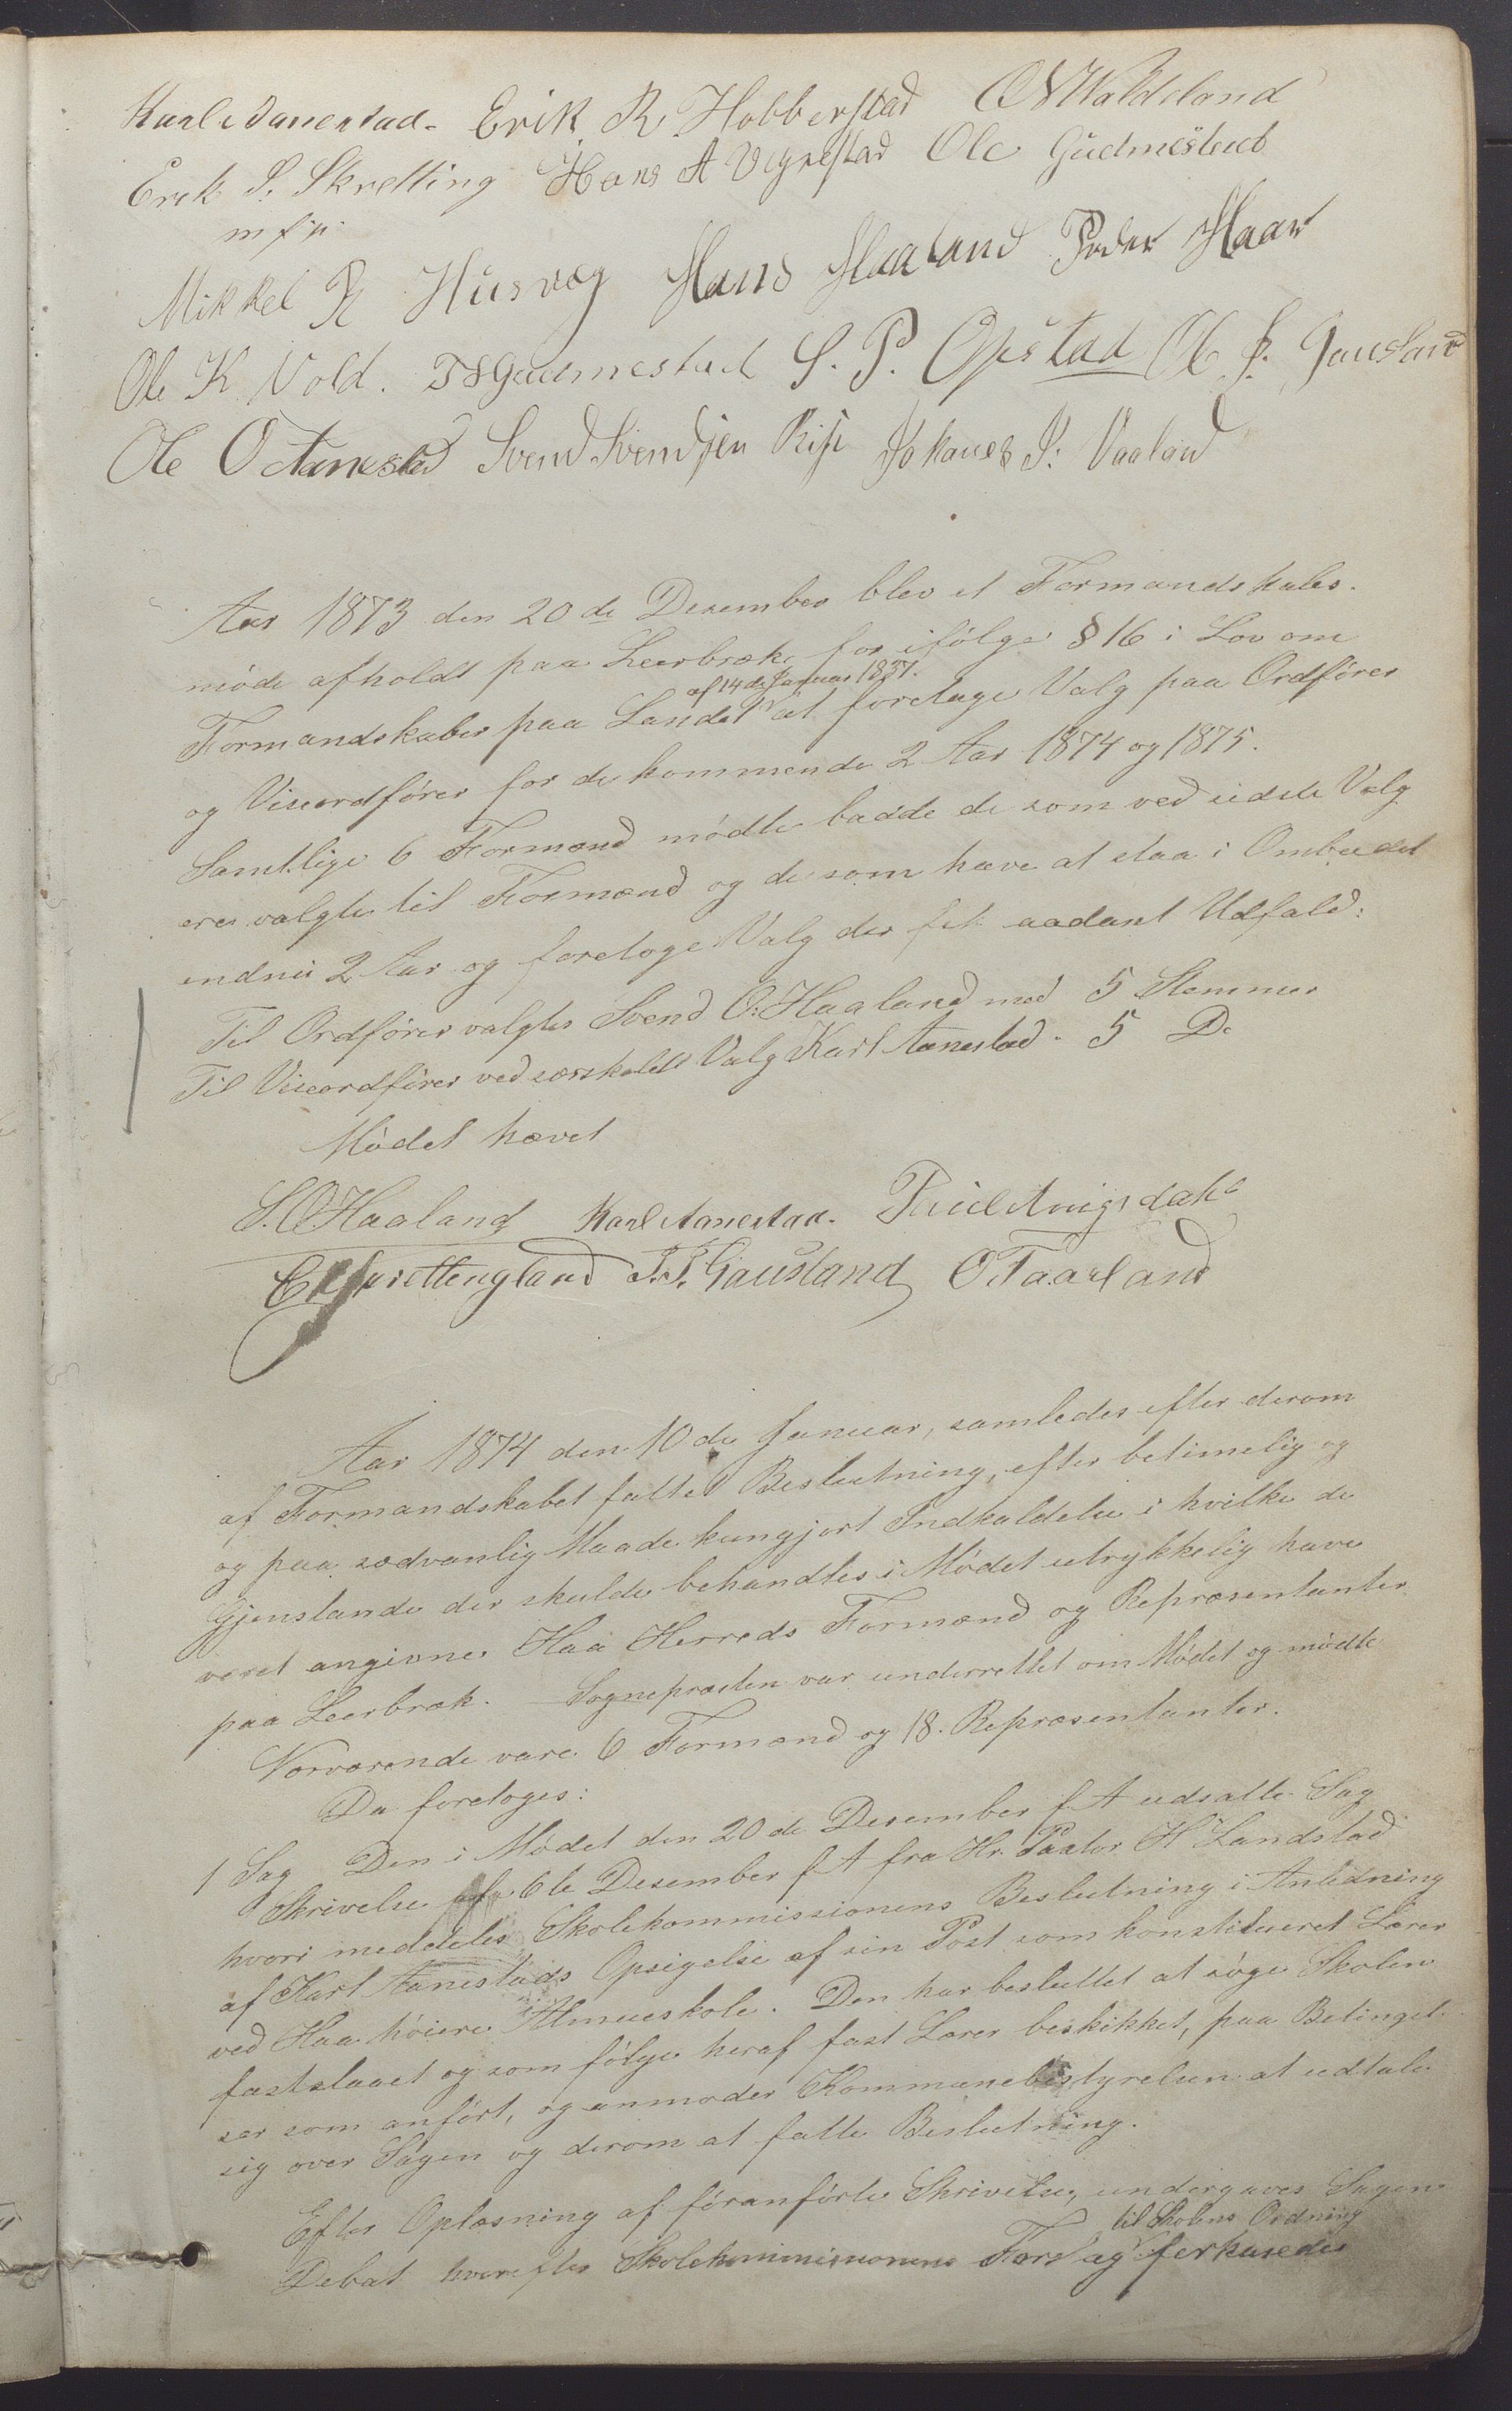 Karl Aanestad. Erik R. Hobberstad O Waldeland
Erik S. Skretting Hans A Vigrestad Ole Gudmestad
m f p
Mikkel R Husvæg Hans Haaland Peder Haar
Ole K Vold. TS Gudmestad S. P. Opstad Ole J. Gausland
Ole O Aanestad Svend Svendsen Risje Johanes J. Vaaland
Aar 1873 den 20de Desember blev et Formandskabs-
møde afholdt paa Leerbræk, for ifølge § 16 i Lov om
af 14de Januar 1837.
Formandskaber paa Landet at foretage Valg paa Ordfører
og Viseordfører for de kommende 2 Aar 1874 og 1875.
Samtlige 6 Formænd mødte badde de som ved sidste Valg
ere valgte til Formænd og de som have at staa i Ombudet
endnu 2 Aar og foretoge Valg der fik saadant Udfald:
Til Ordfører valgtes Svend O. Haaland med 5 Stemmer
Til Viseordfører ved særskildt Valg Karl Aanestad - 5 Do
Mødet hævet
S. O Haaland Karl Aanestad. Paul Anigsdahl
E Skrettingland T. T. Gausland O Taarland
Aar 1874 den 10de Januar, samledes efter derom
af Formandskabet fattet Beslutning, efter betimelig og
og paa sædvanlig Maade kungjort Indkaldelse i hvilke de
Gjenstande der skulde behandles i Mødet utrykkelig have
været angivne Haa Herreds Formænd og Repræsentanter
paa Leerbræk. Sognepræsten var underrettet om Mødet og mødte
Nærværende vare 6 Formænd og 18. Repræsentanter.
Da foretoges:
1 Sag Den i Mødet den 20de Desember f A udsatte Sag
Skrivelse af 6te Desember f A fra Hr. Pastor H Landstad
hvori meddeles Skolekommissionens Beslutning i Anledning
af Karl Aanestads Opsigelse af sin Post som konstitueret Lærer
ved Haa høiere Almueskole. Den har besluttet at søge Skolen
fastslaaet og som følge heraf fast Lærer beskikket, paa Betingel-
ser som anført, og anmoder Kommunebestyrelsen at udtale
sig over Sagen og derom at fatte Beslutning.
Efter Oplæsning af føranførte Skrivelse, undergaves Sagen
til Skolens Ordning
Debat hvorefter Skolekommissionens Forslag forkastedes